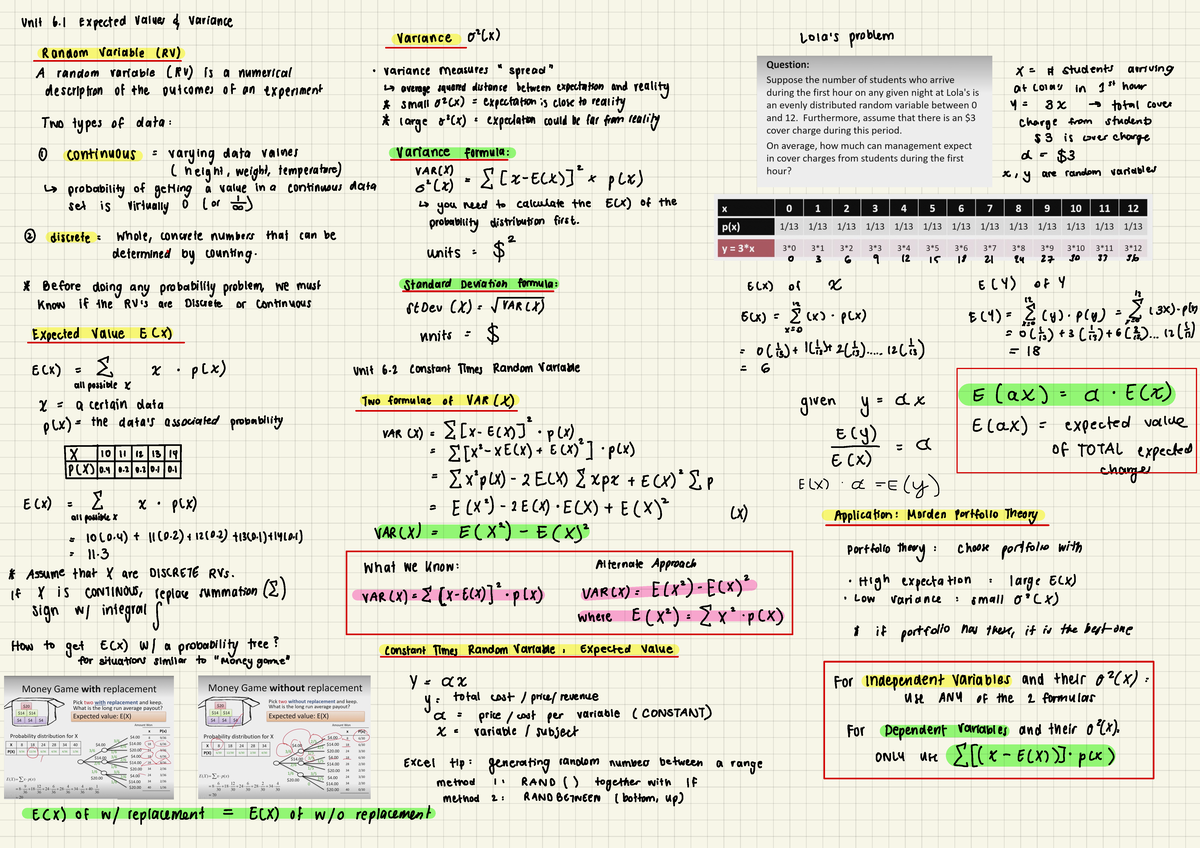 Unit 6.1 Expected Values & Variance
Random Variable (RV)
A random variable (RV) is a numerical
description of the outcomes of an experiment
Two types of data:
① continuous = varying data values
(height, weight, temperature)
↳ probability of getting a value in a continuous data
set is virtually 0 (or 1/∞)
② discrete = Whole, concrete numbers that can be
determined by counting.
* Before doing any probability problem, we must
know if the RV's are Discrete or Continuous
Expected Value E(x)
E(x) = Σ x · p(x)
all possible x
x = a certain data
p(x) = the data's associated probability
X 10 11 12 13 14
P(X) 0.4 0.2 0.2 0.1 0.1
E(x) = Σ x · p(x)
all possible x
= 10(0.4) + 11(0.2) + 12(0.2) +13(0.1)+14(0.1)
= 11.3
* Assume that X are DISCRETE RVs.
if X is CONTINOUS, replace summation (Σ)
sign w/ integral ∫
How to get E(x) w/ a probability tree?
for situations similar to "Money game"
Money Game with replacement
$20
$14 $14
$4 $4 $4
Pick two with replacement and keep.
What is the long run average payout?
Expected value: E(X)
Probability distribution for X
X 8 18 24 28 34 40
Money Game without replacement
$20
$14 $14
$4 $4 $4
Pick two without replacement and keep.
What is the long run average payout?
Expected value: E(X)
Probability distribution for X
X 8 18 24 28 34
E(X) of w/ replacement = E(X) of w/o replacement
Variance σ²(x)
· Variance measures "spread"
↳ average squared distance between expectation and reality
* small σ²(x) = expectation is close to reality
* large σ²(x) = expectation could be far from reality
Variance formula:
VAR(X)
σ²(x) = Σ [x-E(x)]² * p(x)
↳ you need to calculate the E(x) of the
probability distribution first.
units = $²
Standard Deviation formula:
St Dev (X) = √VAR(X)
units = $
Unit 6.2 Constant Times Random Variable
Two formulae of VAR(X)
VAR (X) = Σ[x-E(X)]² · p(x)
= Σ[x²-xE(x) + E(x)²] · p(x)
= Σx²p(x) - 2E(x) Σxpx + E(x)² Σp
= E(x²) - 2E(x) · E(x) + E(x)²
VAR(X) = E(X²) - E(X)²
What we know:
VAR(X) = Σ [x-E(x)]² · p(x)
Alternate Approach
VAR(X) = E(x²) - E(x)²
where E(x²) = Σx² · p(x)
Constant Times Random Variable, Expected Value
Y = αx
y = total cost / price/ revenue
α = price / cost per variable (CONSTANT)
x = variable / subject
Excel tip: generating random number between a range
method 1: RAND () together with IF
method 2: RANDBETWEEN (bottom, up)
Lola's problem
Question:
Suppose the number of students who arrive
during the first hour on any given night at Lola's is
an evenly distributed random variable between 0
and 12. Furthermore, assume that there is an $3
cover charge during this period.
On average, how much can management expect
in cover charges from students during the first
hour?
X = # students arriving
at Lola's in 1st hour
Y = 3x → total cover
charge from students
$3 is cover charge
α = $3
x, y are random variables
x 0 1 2 3 4 5 6 7 8 9 10 11 12
p(x) 1/13 1/13 1/13 1/13 1/13 1/13 1/13 1/13 1/13 1/13 1/13 1/13 1/13
y = 3*x 3*0 3*1 3*2 3*3 3*4 3*5 3*6 3*7 3*8 3*9 3*10 3*11 3*12
0 3 6 9 12 15 18 21 24 27 30 33 36
E(x) of x
E(x) = Σ (x) · p(x)
= 0(1/13) + 1(1/13)+ 2(1/13)..... 12(1/13)
= 6
E(Y) of Y
E(Y) = Σ (y) · p(y) = Σ (3x)·p(y)
= 0(1/13) + 3(1/13)+6(1/13)... 12(1/13)
= 18
given y = αx
E(y)/E(x) = α
E(x) · α = E(y)
E(αx) = α · E(x)
E(αx) = expected value
OF TOTAL expected
charge
(X)
Application: Morden Portfolio Theory
Portfolio theory: choose portfolio with
· High expectation = large E(x)
· Low variance = small σ²(x)
* if portfolio has these, it is the best one
For Independent Variables and their σ²(x):
Use ANY of the 2 formulas
For Dependent Variables and their σ²(x).
ONLY use Σ[(x - E(x))]· p(x)